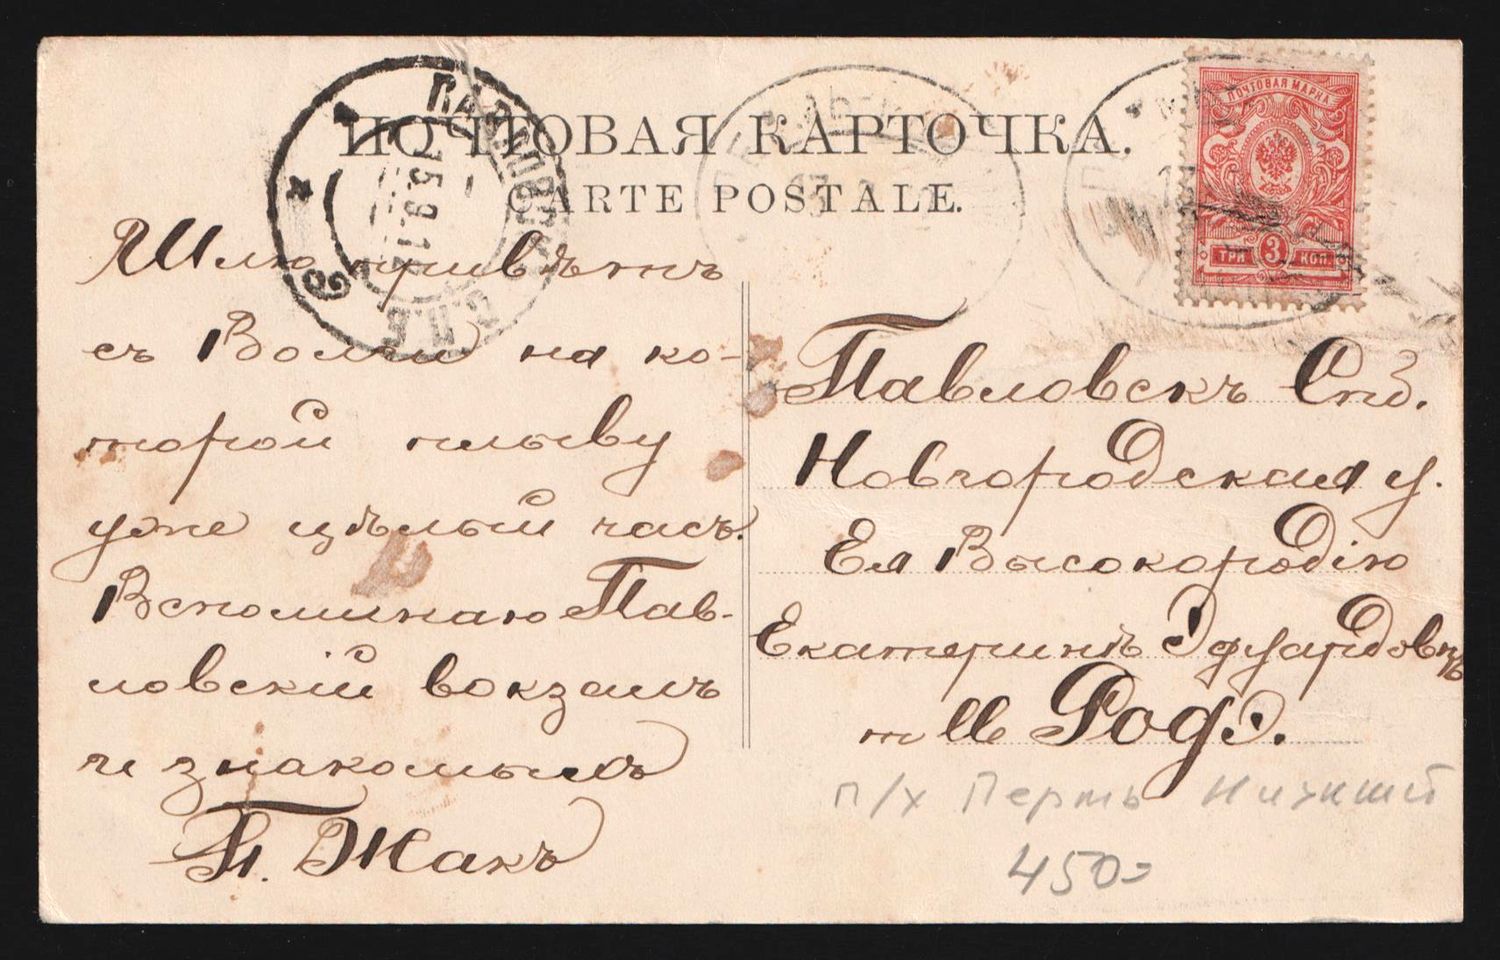 ПОЧТОВАЯ КАРТОЧКА.
CARTE POSTALE.
ПОЧТОВАЯ МАРКА
ТРИ 3 КОП.
ПАВЛОВСКЪ С.П.Б.
15.9.12
13
Шлю привѣтъ
съ Волги на ко-
торой плыву
уже цѣлый часъ.
Вспоминаю Пав-
ловскій вокзалъ
и знакомыхъ
П. Жакъ
Павловскъ Спб.
Новгородская у.
Ея Высокородію
Екатеринѣ Эдуардовнѣ
Рофэ.
п/х Пермь Нижний
450=